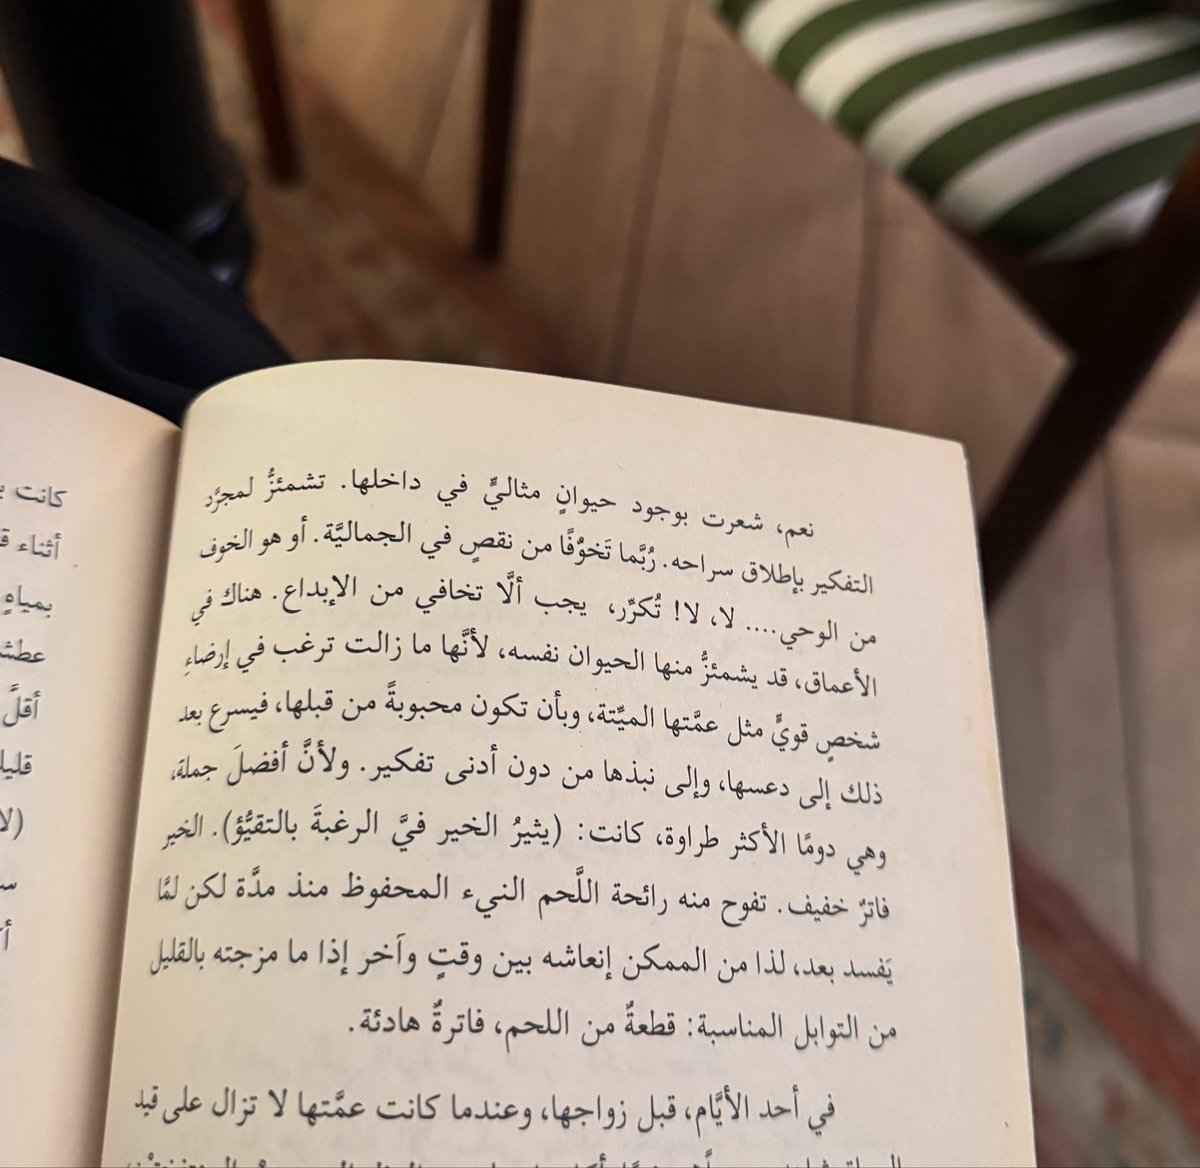 نعم، شعرت بوجود حيوانٍ مثاليٍّ في داخلها. تشمئزُّ لمجرَّد
التفكير بإطلاق سراحه. رُبَّما تَخوُّفًا من نقصٍ في الجماليَّة. أو هو الخوف
من الوحي.... لا، لا! تُكرِّر، يجب ألَّا تخافي من الإبداع. هناك في
الأعماق، قد يشمئزُّ منها الحيوان نفسه، لأنَّها ما زالت ترغب في إرضاءِ
شخصٍ قويٍّ مثل عمَّتها الميِّتة، وبأن تكون محبوبةً من قبلها، فيسرع بعد
ذلك إلى دعسها، وإلى نبذها من دون أدنى تفكير. ولأنَّ أفضلَ جملة،
وهي دومًا الأكثر طراوة، كانت: (يثيرُ الخير فيَّ الرغبةَ بالتقيُّؤ). الخير
فاترٌ خفيف. تفوح منه رائحة اللَّحم النيء المحفوظ منذ مدَّة لكن لمَّا
يَفسد بعد، لذا من الممكن إنعاشه بين وقتٍ وآخر إذا ما مزجته بالقليل
من التوابل المناسبة: قطعةٌ من اللحم، فاترةٌ هادئة.
في أحد الأيَّام، قبل زواجها، وعندما كانت عمَّتها لا تزال على قيد
كانت
أثناء
بمياهٍ
أقلَّ